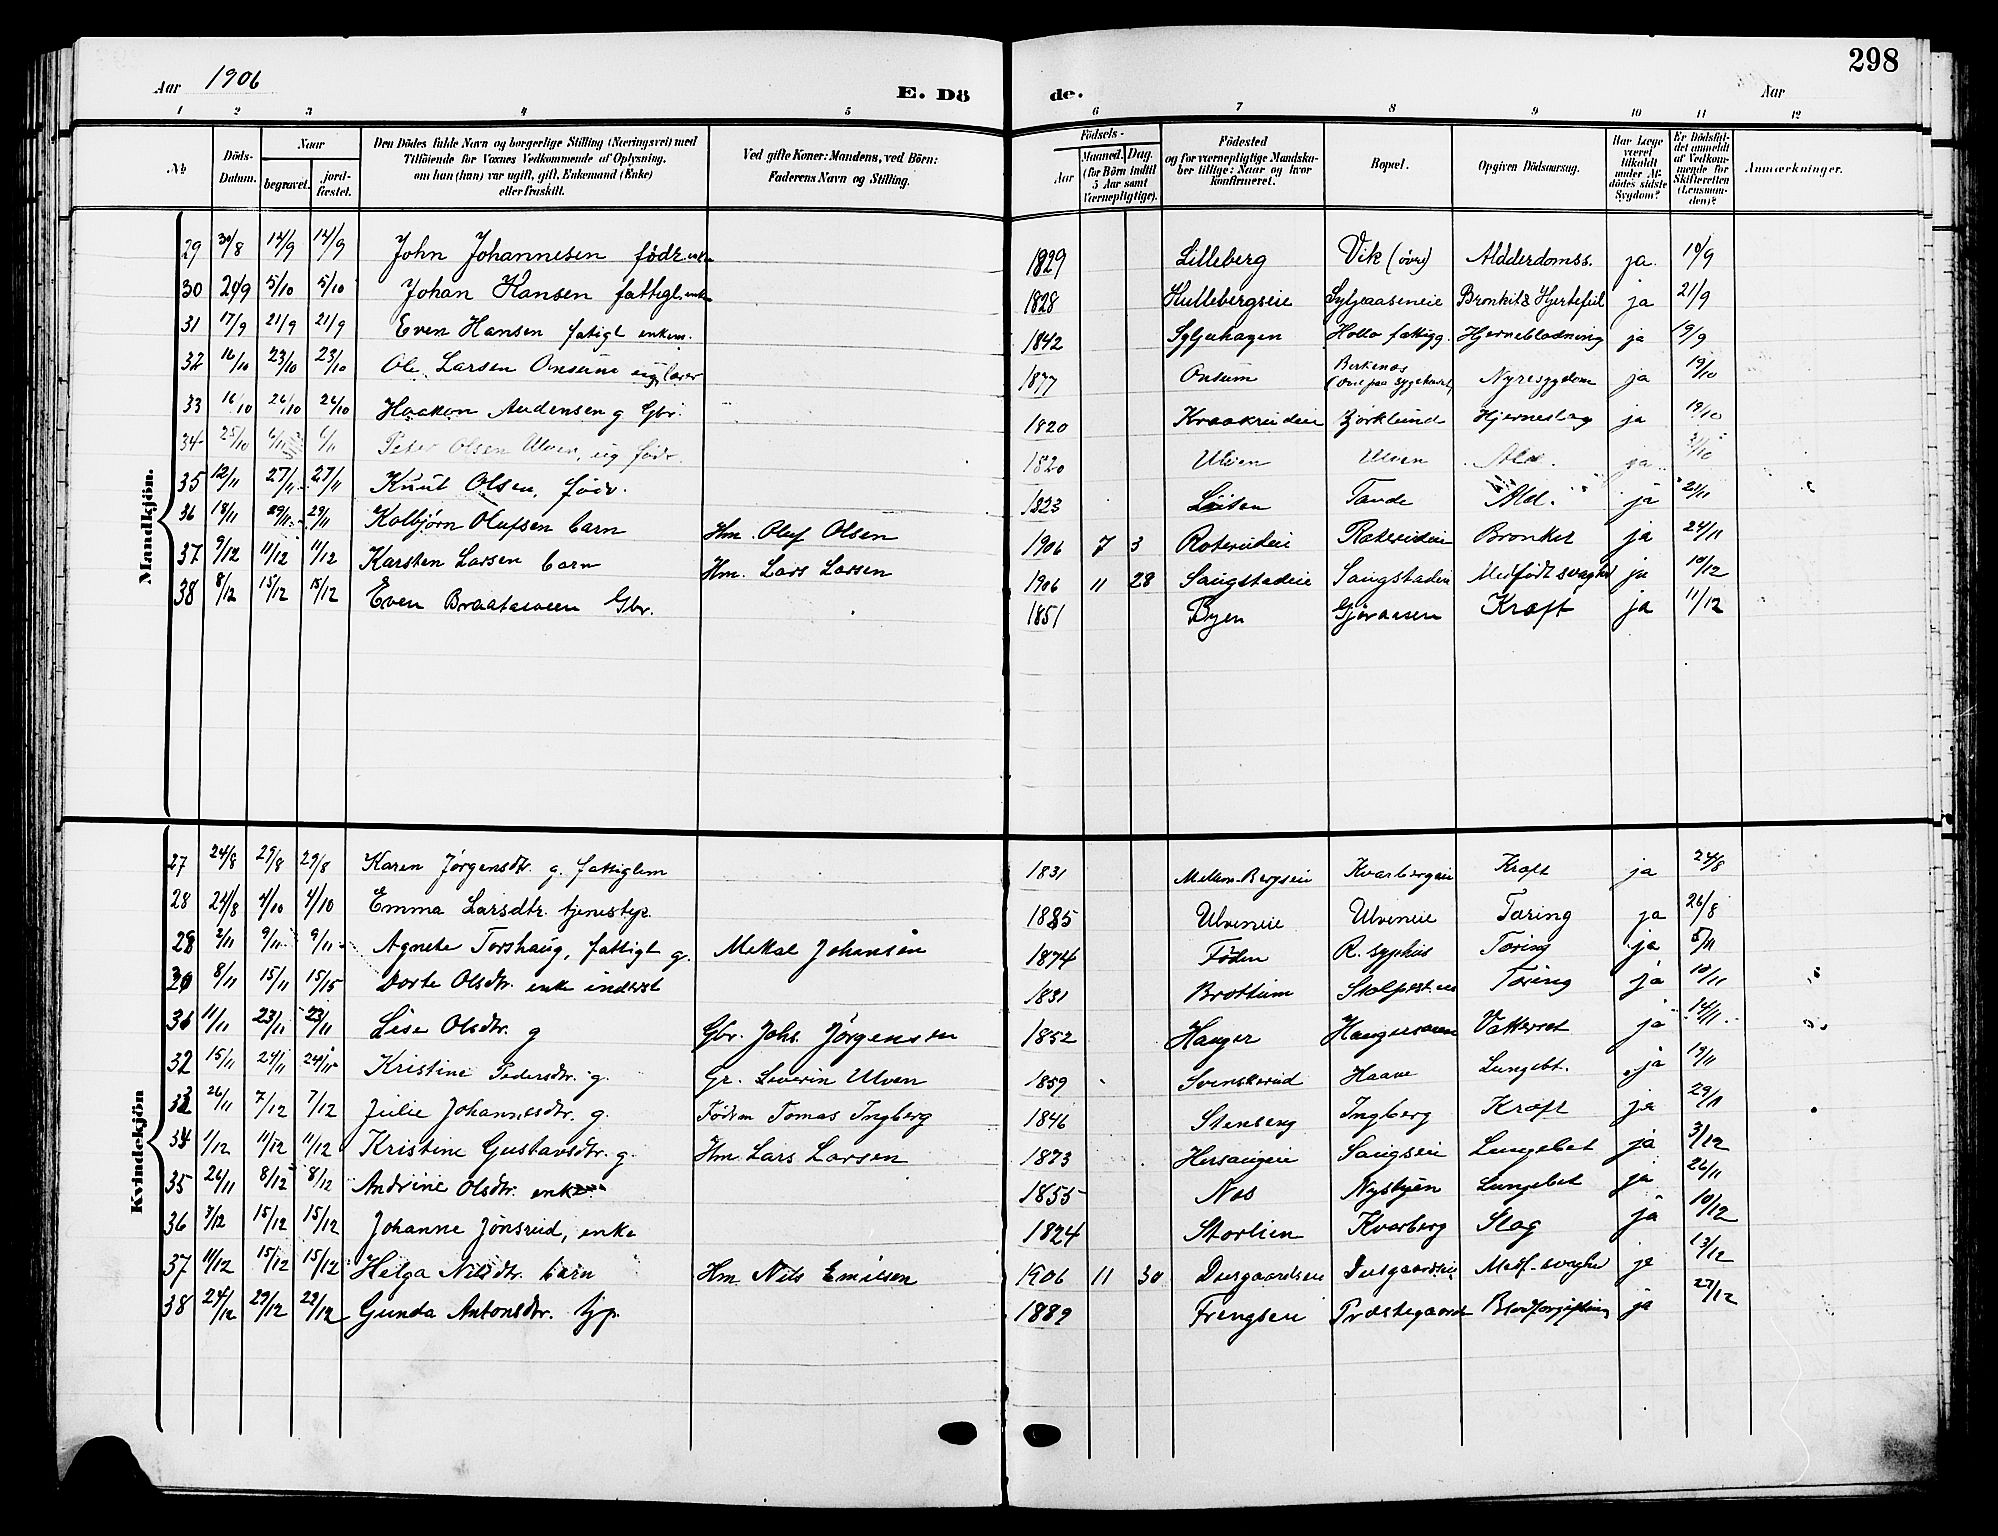 298
Aar 1906
E. Dö
de.
Aar
1 2 3 4 5 6 7 8 9 10 11 12
No.
Döds-Datum.
Naar
begravet.
jord-fæstet.
Den Dödes fulde Navn og borgerlige Stilling (Næringsvei) med
Tilföiende for Voxnes Vedkommende af Oplysning,
om han (hun) var ugift, gift, Enkemand (Enke)
eller fraskilt.
Ved gifte Koner: Mandens, ved Börn:
Faderens Navn og Stilling.
Födsels-
Aar
Maaned. Dag.
(for Börn indtil
5 Aar samt
Værnepligtige).
Födested
og for værnepligtige Mandska-
ber tillige: Naar og hvor
konfirmeret.
Bopæl.
Opgiven Dödsaarsag.
Har Læge
været
tilkaldt
under Af-
dödes sidste
Sygdom?
Er Dödsfal-
det anmeldt
af Vedkom-
mende for
Skifteretten
(Lensman-
den)?
Anmærkninger.
Mandkjön.
29 30/8 12/9 12/9 John Johannesen födr. enkm 1829 Lilleberg Vik (övre) Aldderdomss. ja 10/9
30 20/9 5/10 5/10 Johan Hansen fattigl. enkm 1828 Hullebergseie Syljeaaseneie Bronkit & Hjertefeil ja 21/9
31 17/9 21/9 21/9 Even Hansen fatigl enkem. 1842 Syljuhagen Hollo fattigg. Hjerneblødning ja 19/9
32 16/10 23/10 23/10 Ole Larsen Onsum ug. lærer 1877 Onsum Birkenes (död paa sygehuset) Nyresygdom ja 19/10
33 16/10 26/10 26/10 Haakon Audensen g Gbr. 1820 Kraakrudeie Björklund Hjerneslag ja 19/10
34 25/10 6/11 6/11 Peter Olsen Ulven, ug födr. 1820 Ulven Ulven Ald. ja 31/10
35 12/11 27/11 27/11 Knut Olsen, födr. 1823 Löiten Tande Ald. ja 21/11
36 18/11 29/11 29/11 Kolbjørn Olufsen barn Hm. Oluf Olsen 1906 7 3 Roterudeie Roterudeie Bronkit ja 24/11
37 9/12 11/12 11/12 Karsten Larsen barn Hm. Lars Larsen 1906 11 28 Saugstadeie Saugstadeie Medfödt svaghed ja 10/12
38 8/12 15/12 15/12 Even Braatasveen Gbr. 1851 Byen Gjöraasen Kræft ja 11/12
Kvindekjön
27 24/8 29/8 29/8 Karen Jørgensdtr. g. fattiglem 1831 Mellem-Bergseie Kvarbergeie Kræft ja 24/8
28 24/8 4/10 4/10 Emma Larsdtr. tjenestpr. 1885 Ulveneie Ulveneie Tæring ja 26/8
29 2/11 9/11 9/11 Agnete Torshaug, fattigl g. Mekal Johansen 1874 Föden R. sygehus Tæring ja 5/11
30 8/11 15/11 15/15 Dorte Olsdtr. enke inderst 1831 Brottum Tæring ja 10/11
31 11/11 23/11 23/11 Lise Olsdtr. g Gbr. Johs. Jørgensen 1852 Hauger Vattersot ja 14/11
32 15/11 24/11 24/11 Kristine Pedersdtr. g. Gr. Severin Ulven 1859 Svenskerud Haave Lungebt. ja 19/11
33 26/11 7/12 7/12 Julie Johannesdtr. g. Födrm Tomas Ingberg 1846 Stenberg Ingberg Kræft ja 29/11
34 1/12 11/12 11/12 Kristine Gustavsdtr. g. Hm. Lars Larsen 1873 Hersaugeie Saugseie Lungebet ja 3/12
35 26/11 8/12 8/12 Andrine Olsdtr. enke 1855 Nes Nysbyen Lungebet ja 26/11
36 3/12 15/12 15/12 Johanne Jönsrud, enke 1824 Storlien Kvarberg Slag ja 10/12
37 11/12 15/12 15/12 Helga Nilsdtr. barn Hm Nils Emilsen 1906 11 30 Duegaardseie Duegaardseie Medf. svaghed ja 13/12
38 24/12 29/12 29/12 Gunda Antonsdtr. tjp. 1889 Frengseie Præstegaard Blodforgiftning ja 27/12